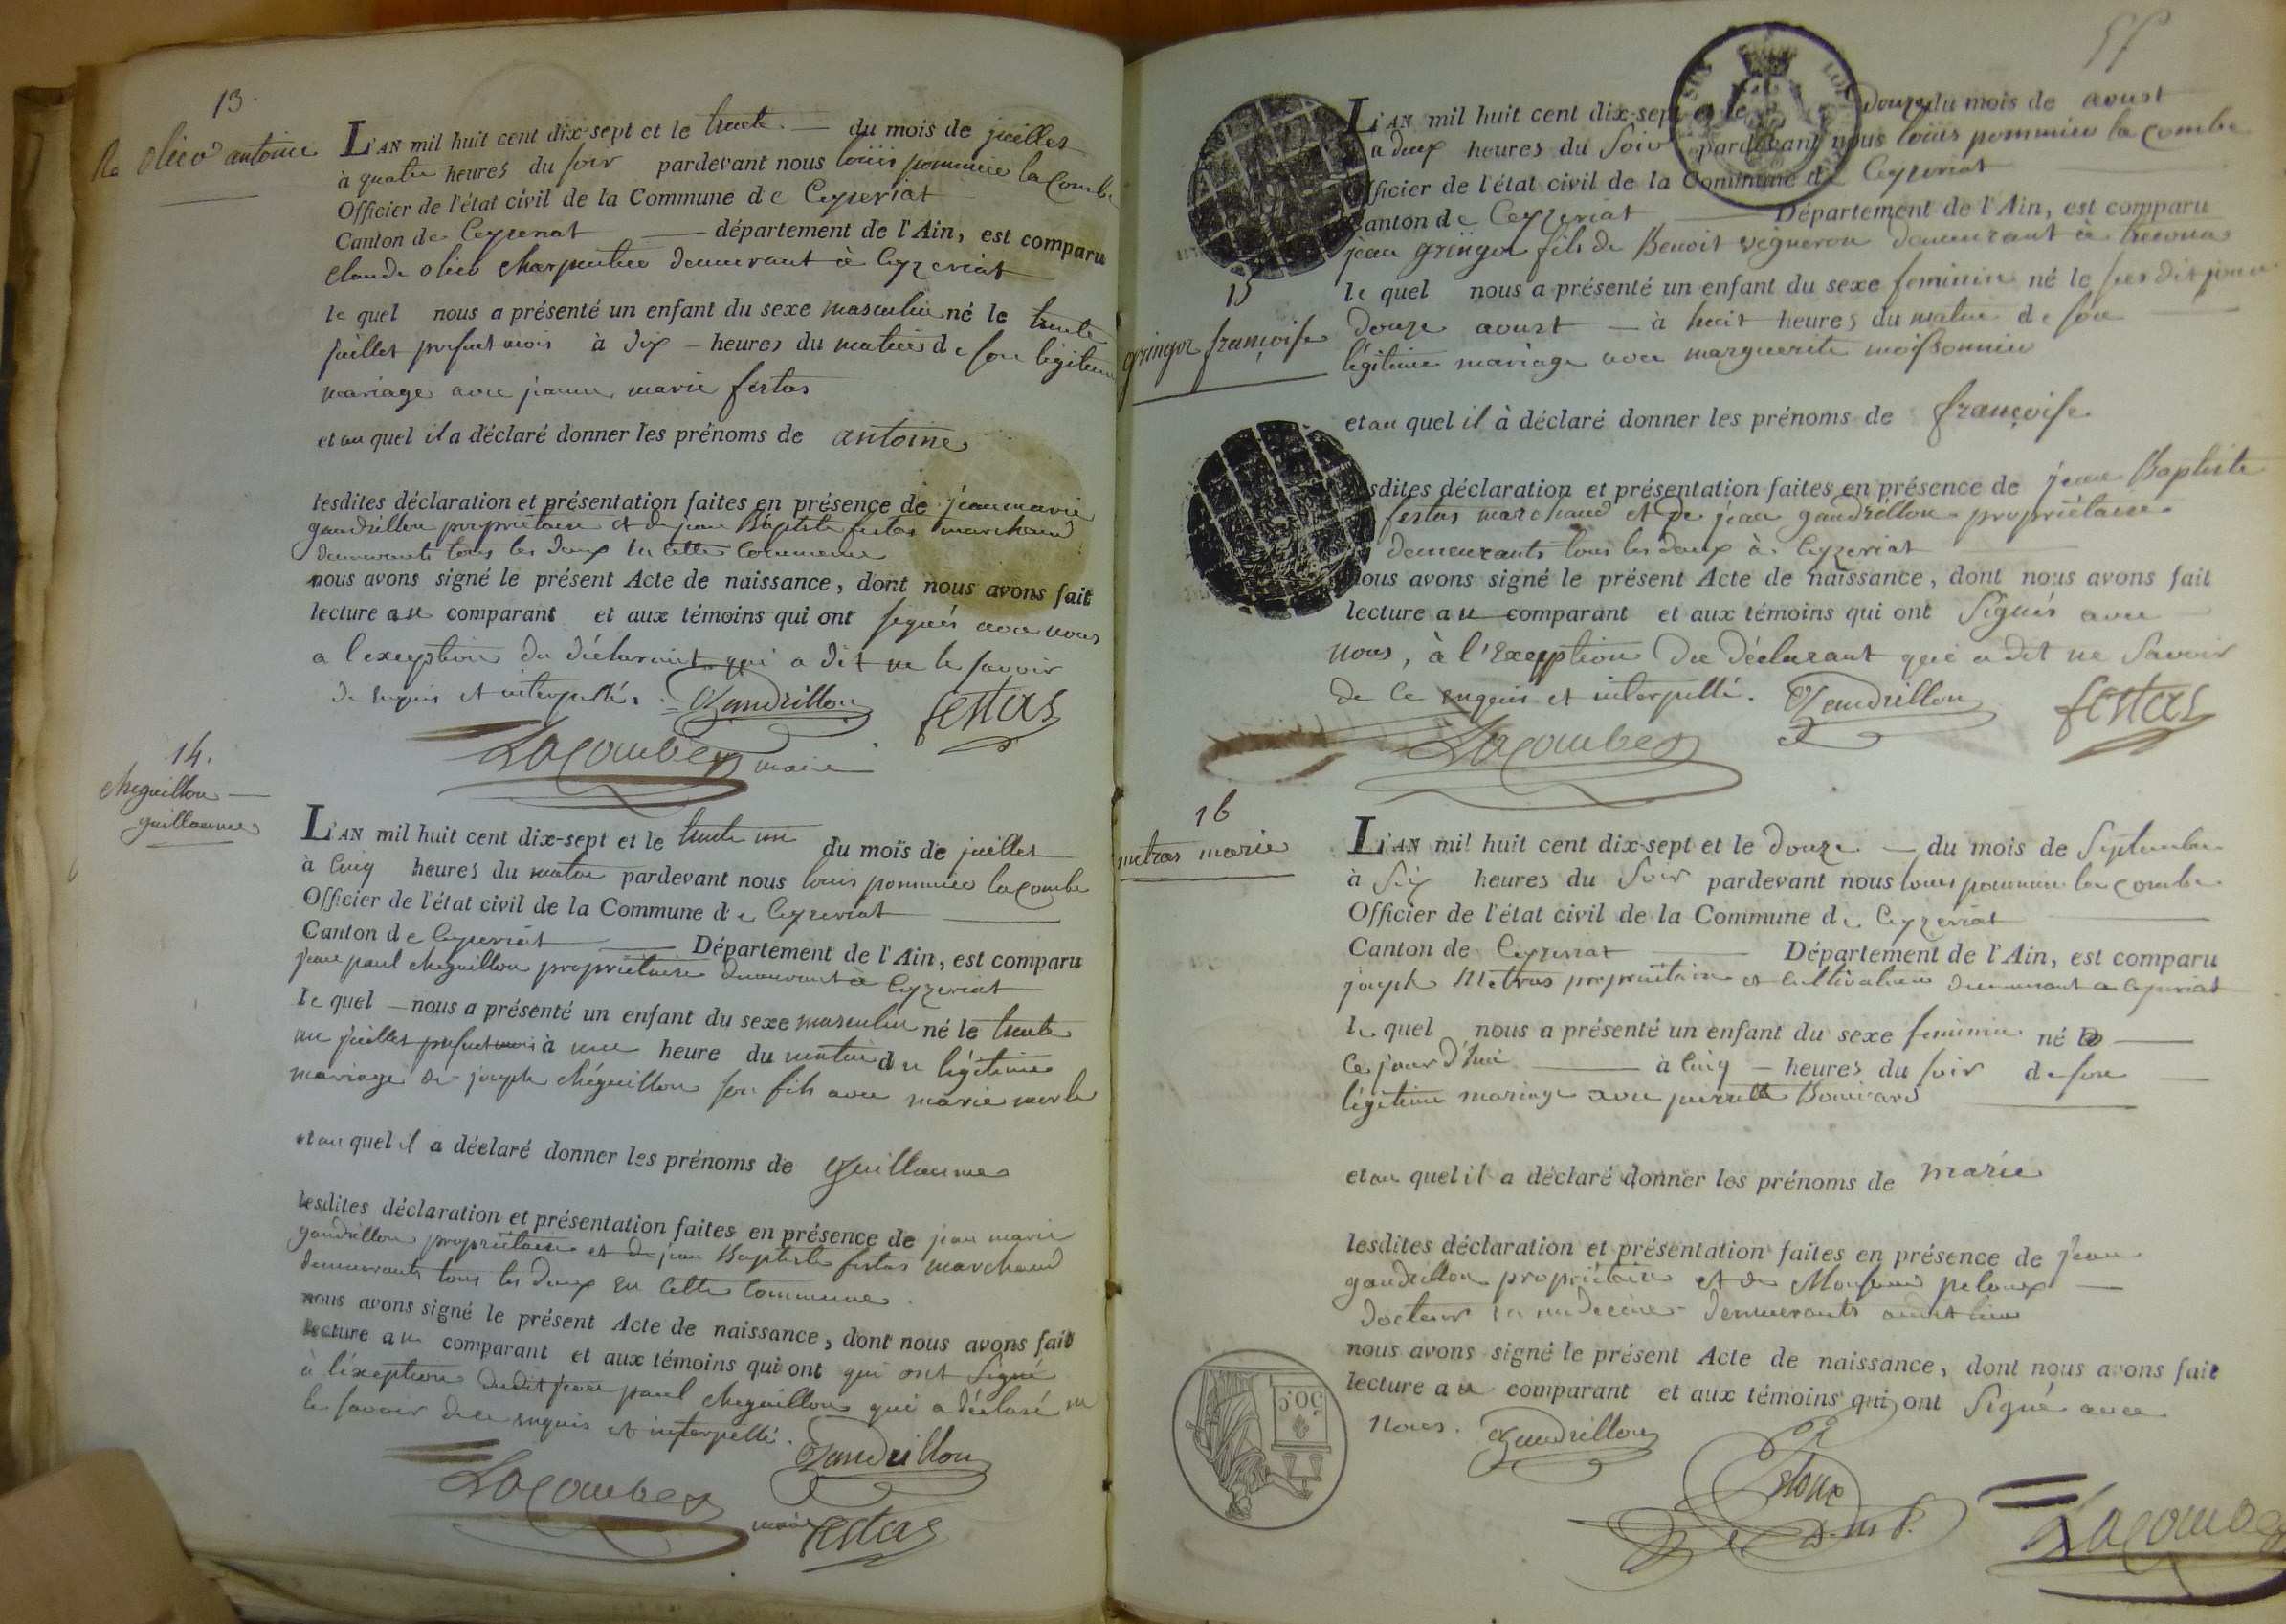 13.
olier antoine
L'AN mil huit cent dix-sept et le trente — du mois de juillet
à quatre heures du soir pardevant nous louis pommier lacombe
Officier de l'état civil de la Commune de Ceyzeriat
Canton de Ceyzeriat — département de l'Ain, est comparu
claude olier charpentier demeurant à Ceyzeriat
le quel nous a présenté un enfant du sexe masculin né le trente
juillet présent mois à dix — heures du matin de son légitime
mariage avec jeanne marie festas
et au quel il a déclaré donner les prénoms de antoine
lesdites déclaration et présentation faites en présence de jean marie
gaudrillon propriétaire et de jean Baptiste festas marchand
demeurants tous les deux en cette commune
nous avons signé le présent Acte de naissance, dont nous avons fait
lecture au comparant et aux témoins qui ont signés avec nous
a l'exception du déclarant qui a dit ne le savoir
de enquis et interpellé. Gaudrillon festas
Lacombe maire
14.
cheguillon —
guillaume
L'AN mil huit cent dix-sept et le trente un du mois de juillet
à cinq heures du matin pardevant nous louis pommier lacombe
Officier de l'état civil de la Commune de Ceyzeriat
Canton de Ceyzeriat — Département de l'Ain, est comparu
jean paul cheguillon propriétaire demeurant à Ceyzeriat
le quel — nous a présenté un enfant du sexe masculin né le trente
un juillet présent mois à une heure du matin du légitime
mariage de joseph chéguillon son fils avec marie merle
et au quel il a déclaré donner les prénoms de guillaume
lesdites déclaration et présentation faites en présence de jean marie
gaudrillon propriétaire et de jean Baptiste festas marchand
demeurants tous les deux en cette commune.
nous avons signé le présent Acte de naissance, dont nous avons fait
lecture au comparant et aux témoins qui ont qui ont signé
à l'éxeption dudit jean paul cheguillon qui a déclaré ne
le savoir de ce enquis et interpellé. Gaudrillon
Lacombe maire festas
L'AN mil huit cent dix-sept et le douze du mois de aoust
a deux heures du Soir pardevant nous louis pommier lacombe
Officier de l'état civil de la Commune de Ceyzeriat
Canton de Ceyzeriat — Département de l'Ain, est comparu
jean gringoz fils de Benoit vigneron demeurant à
15
gringoz françoise
le quel nous a présenté un enfant du sexe feminin né le susdit jour
douze aoust — à huit heures du matin de son
légitime mariage avec marguerite moissonnier
et au quel il à déclaré donner les prénoms de françoise
lesdites déclaration et présentation faites en présence de jean Baptiste
festas marchand et de jean gaudrillon propriétaire
demeurants tous les deux à Ceyzeriat
nous avons signé le présent Acte de naissance, dont nous avons fait
lecture au comparant et aux témoins qui ont Signés avec
nous, à l'Exepption du déclarant qui a dit ne Savoir
de ce enquis et interpellé. Gaudrillon festas
Lacombe
16
metras marie
L'AN mil huit cent dix-sept et le douze — du mois de Septembre
à Six heures du Soir pardevant nous louis pommier lacombe
Officier de l'état civil de la Commune de Ceyzeriat
Canton de Ceyzeriat — Département de l'Ain, est comparu
joseph Metras propriétaire et cultivateur demeurant a Ceyzeriat
le quel nous a présenté un enfant du sexe feminin né
ce jourd'hui — à cinq — heures du soir de son
légitime mariage avec pierrette Bouvard
et au quel il a déclaré donner les prénoms de marie
lesdites déclaration et présentation faites en présence de jean
gaudrillon propriétaire et de Monsieur peloux —
docteur en médecine demeurants audit lieu
nous avons signé le présent Acte de naissance, dont nous avons fait
lecture au comparant et aux témoins qui ont Signé avec
nous. Gaudrillon
Peloux
Lacombe
50 C.